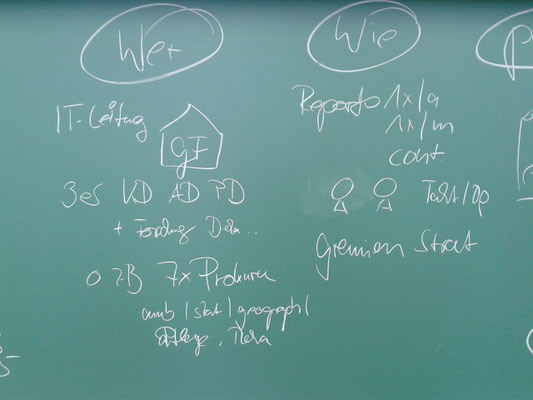 Wer
IT-Leitung
GF
3es VD AD PD
+ Forschung
o zB 7x Prokuren
amb / stat / geograph /
Pflege,
Wie
Reports 1x/a
1x/m
cont
Takt/Op
Gremien Strat
P